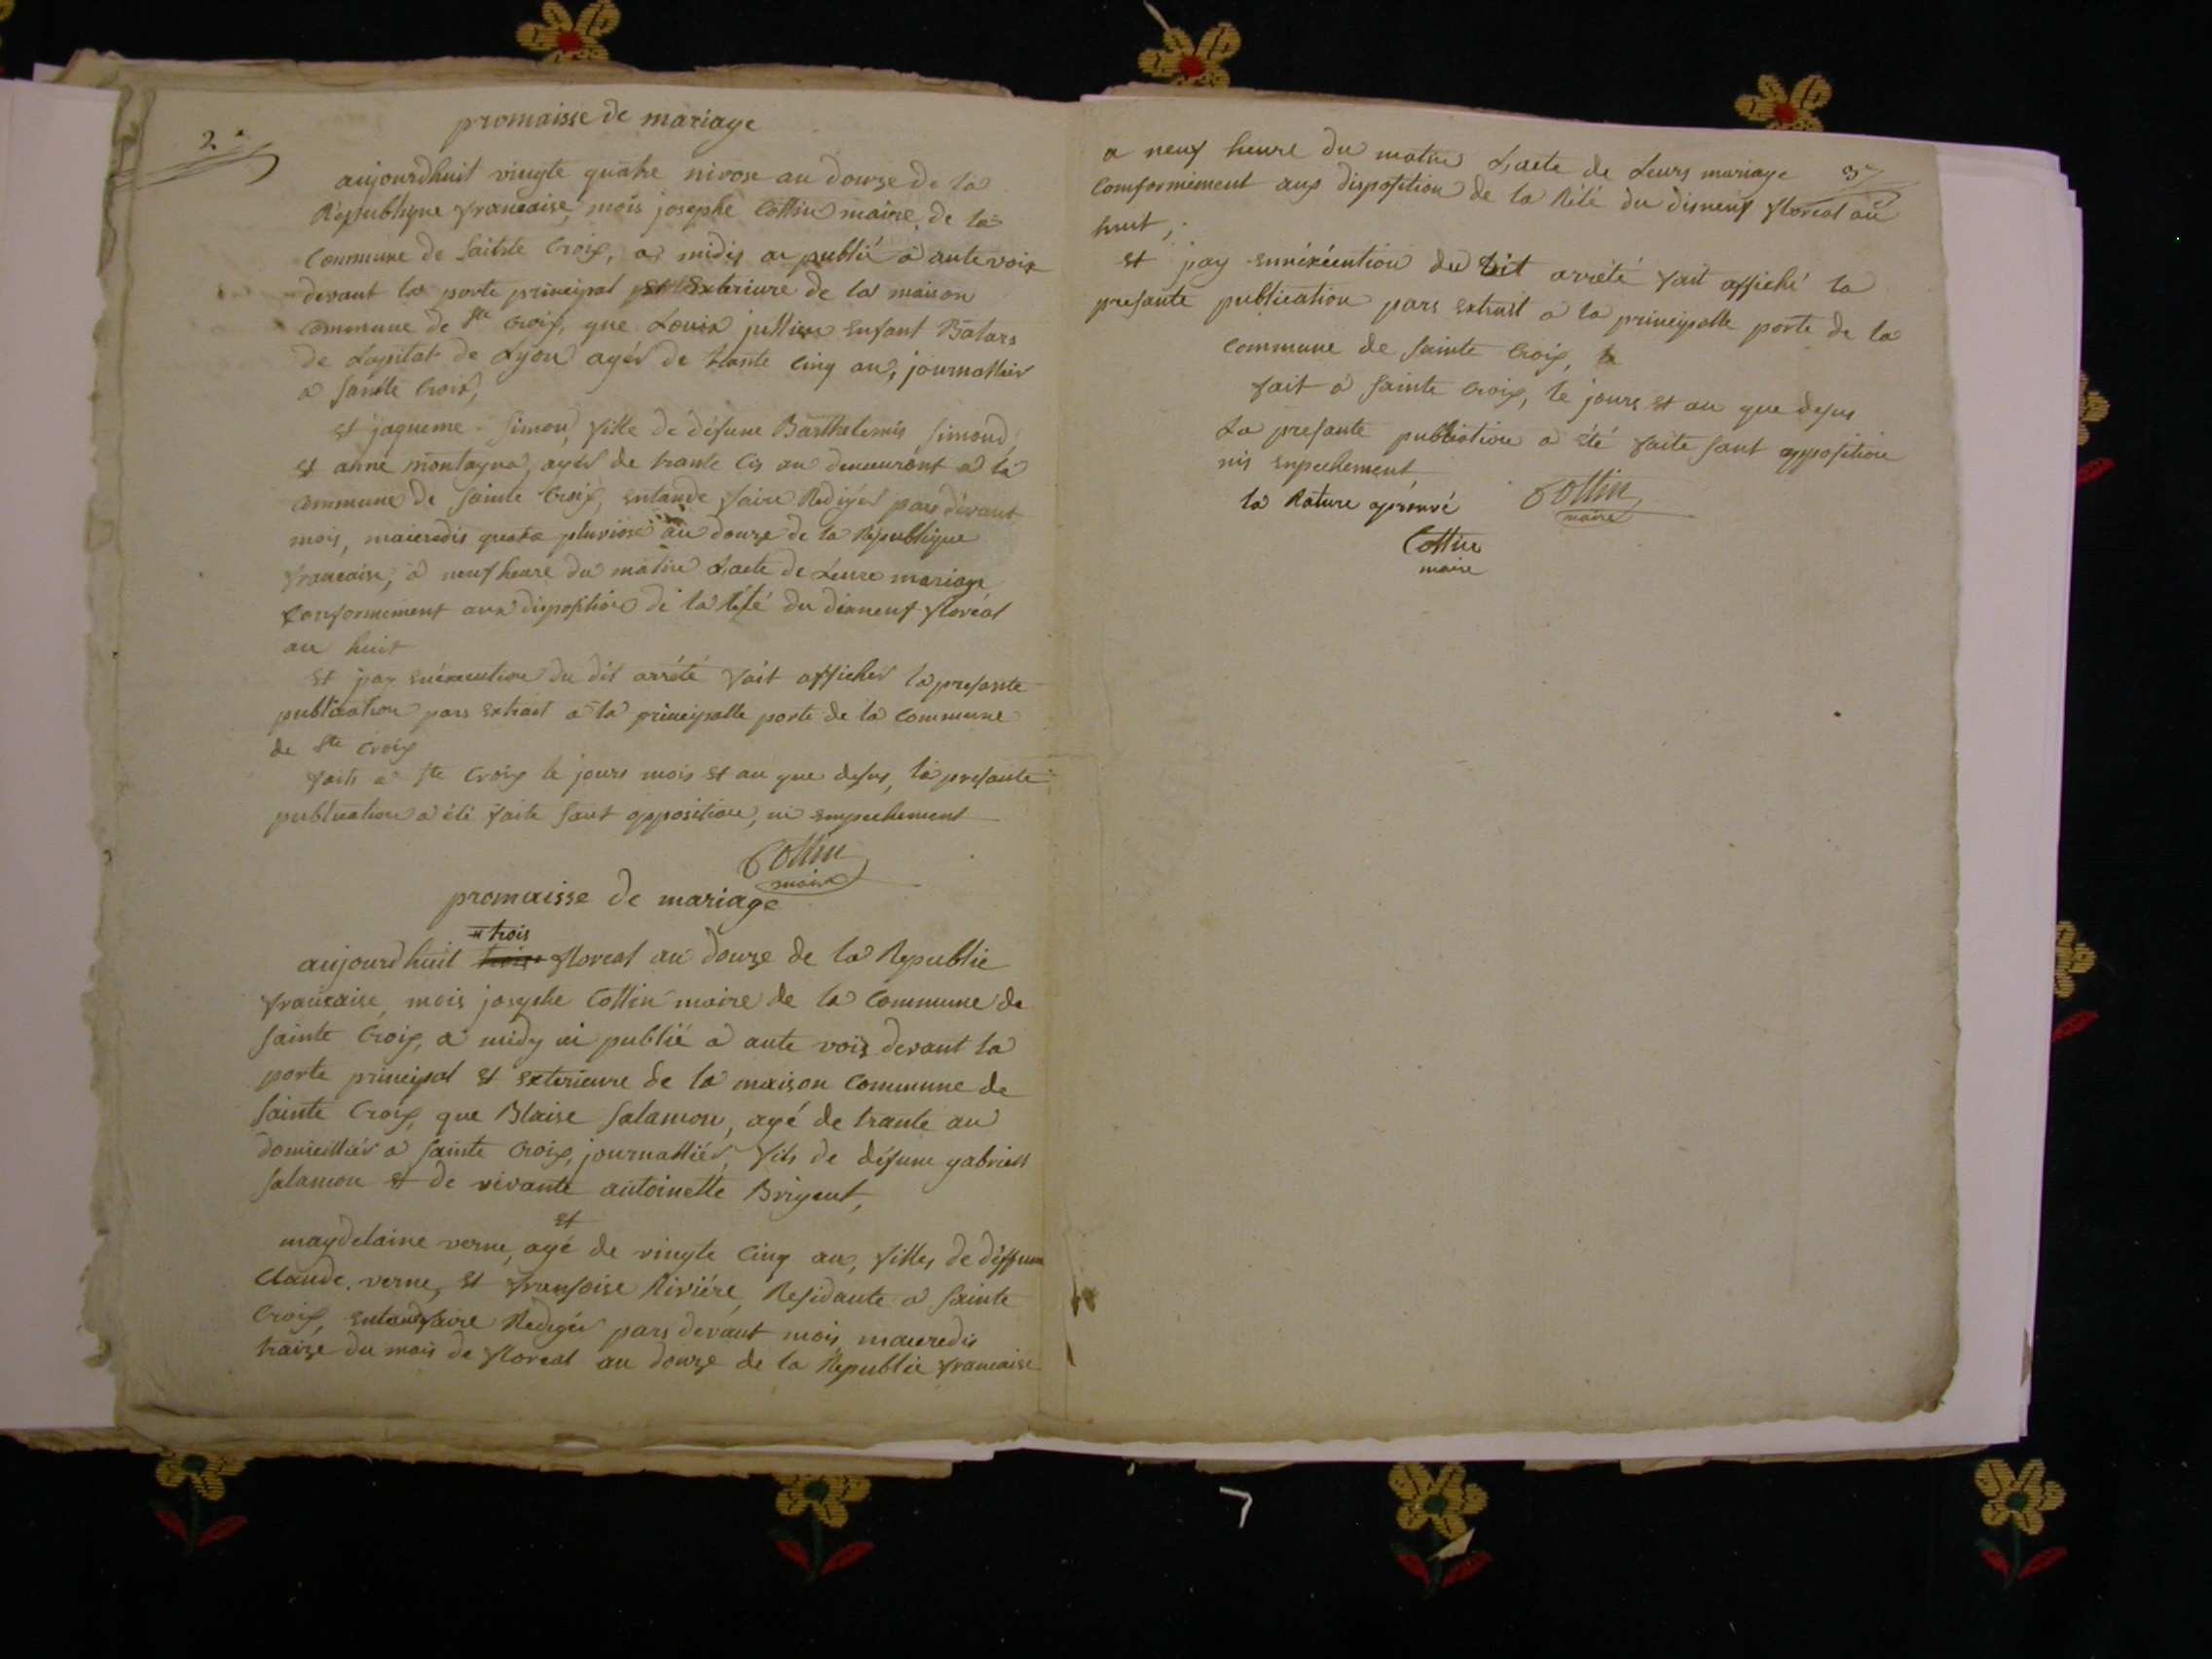 2.
promaisse de mariage
aujourdhuit vingte quatre nivose an douze de la
Republique francaise, mois josephe Cottin maire, de la
Commune de Sainte Croix, a midis ai publié a ante voix
devant la porte principal et Exterieure de la maison
commune de Ste Croix, que Louis jullien Enfant Batars
de Lopital de Lyon agér de trante Cinq an, journallier
a Sainte Croix,
et jaqueme Simon, fille de défune Barthelemis Simond,
et anne montagna, agér de trante cis an demeurent a la
commune de Sainte Croix, entande faire Rediger pars devant
mois, maicredis quatre pluviose an douze de la Republique
francaise, a neuf heure du matin Lacte de Leure mariage
conformement aux disposition de la Rété du dixneuf floréal
an huit
et jay enéxecution du dit arrété fait afficher la presante
publication pars extrait a la principalle porte de la Commune
de Ste Croix
faits a Ste Croix le jours mois et an que desus, la presante
publication a été faite sant opposition, ni empechement
Cottin
maire
promaisse de mariage
trois
aujourdhuit floreal an douze de la Republic
francaise, mois josephe Cottin maire de la Commune de
Sainte Croix, a midy ai publié a ante vois devant la
porte principal et exterieure de la maison Commune de
Sainte Croix, que Blaise Salamon, agé de trante an
domicillier a Sainte Croix, journallier, fils de défune gabriell
Salamon et de vivante antoinette Brigent,
et
maydelaine verne, agé de vingte Cinq an, filles de deffune
Claude verne, et fransoise Riviére, Residante a Sainte
Croix, entande faire Rediger pars devant mois, maicredis
traize du mois de floreal an douze de la Republic francaise
3
a neuf heure du matin Lacte de Leurs mariage
Comformément aux disposition de la Rété du disneuf floreal an
huit,
et jay ennéxécution du dit arrété fait affiché la
presante publication pars extrait a la principalle porte de la
commune de Sainte Croix,
fait a Sainte Croix, le jours et an que desus
La presante publiation a été faite sant opposition
nis enpechement
la Rature aprouvé
Cottin
maire
Cottin
maire